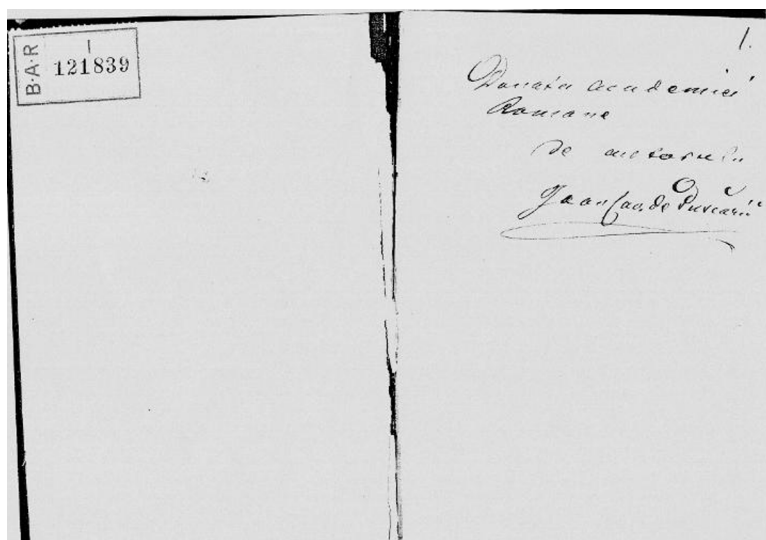 B.A.R
I
121839
1.
Donata Academiei
Romane
de autorulu
Ioan Cav. de Puscariu